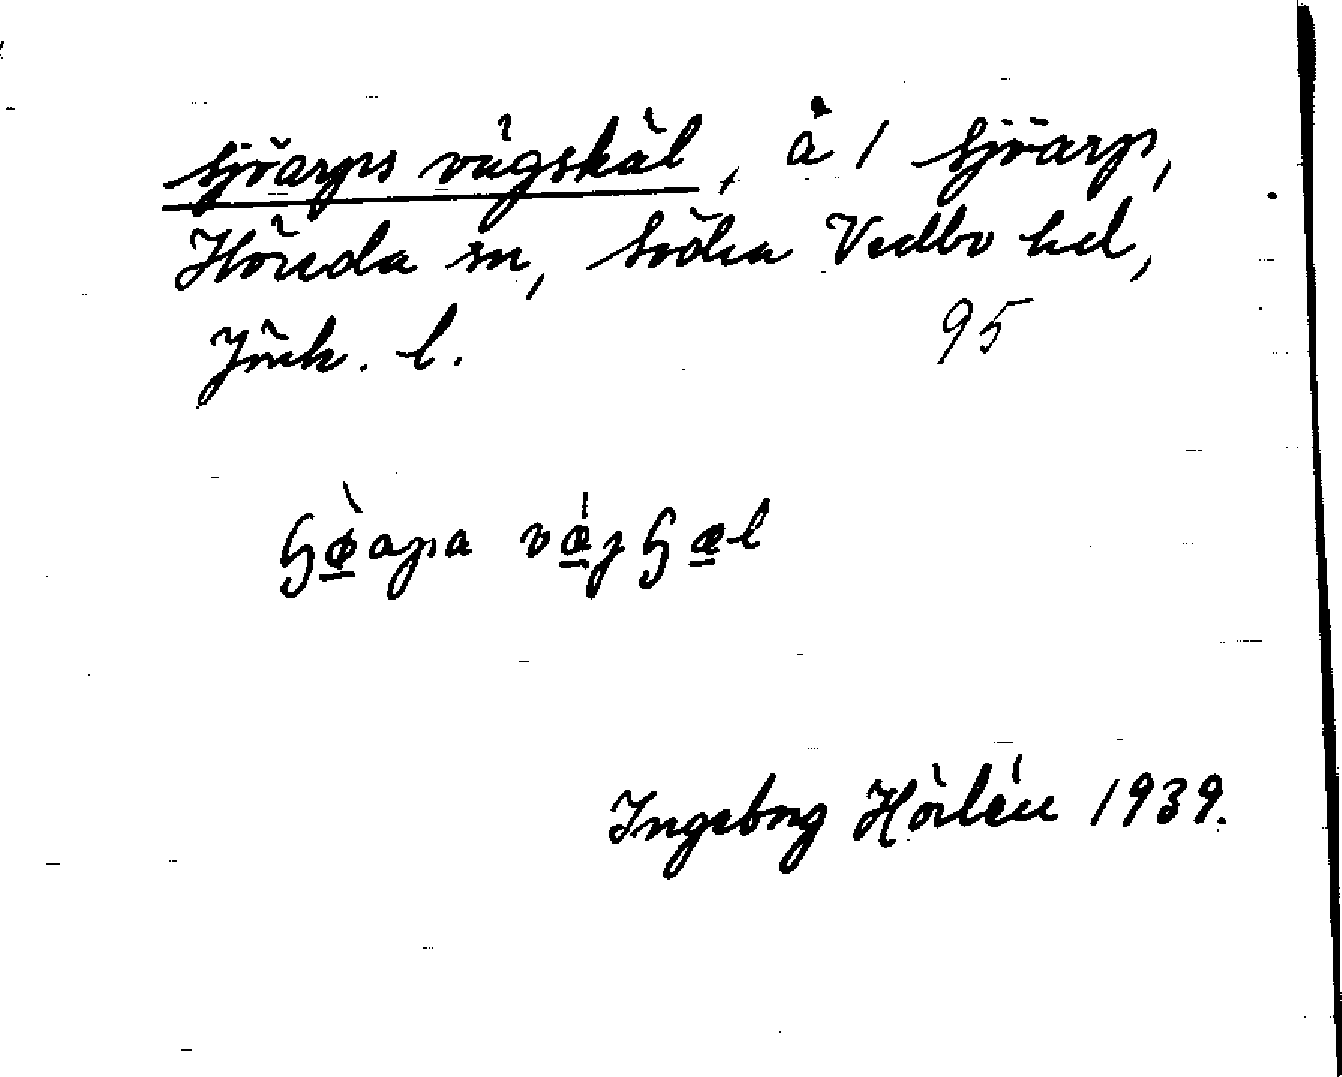 Sjöarps vägskäl, å 1 Sjöarp,
Höreda sn, Södra Vedbo hd,
Jönk. l. 95
ɧø̀apa vǽgɧæl
Ingeborg Hörlén 1939.